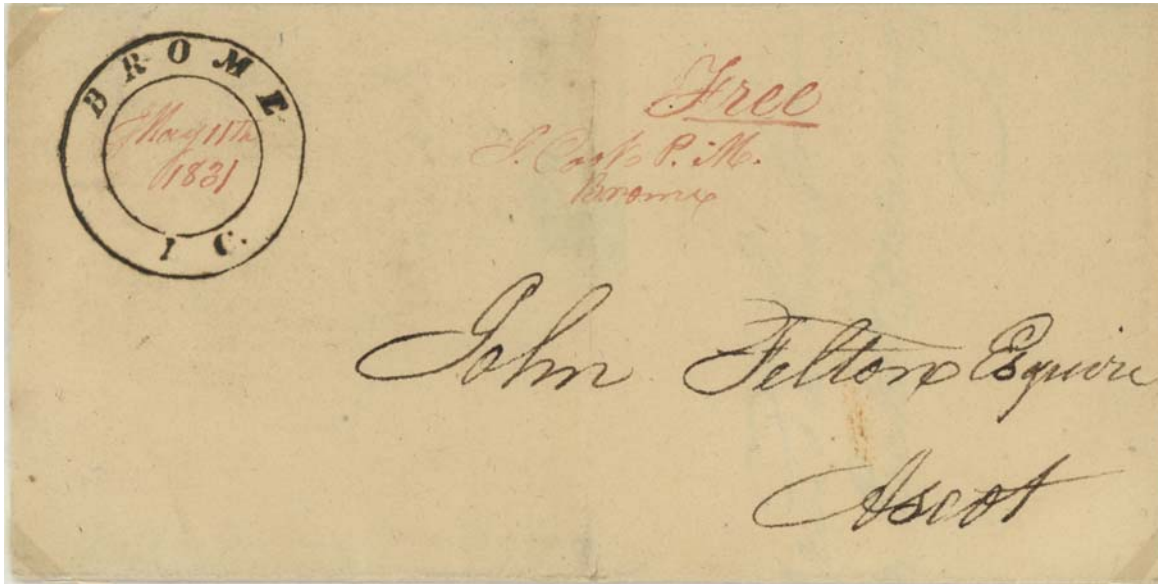 BROME
May 11th
1831
I C.
Free
S. P. M.
Brome
John Felton Esquire
Ascot